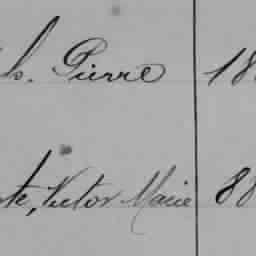 Pierre 18
te, Victor Marie 88